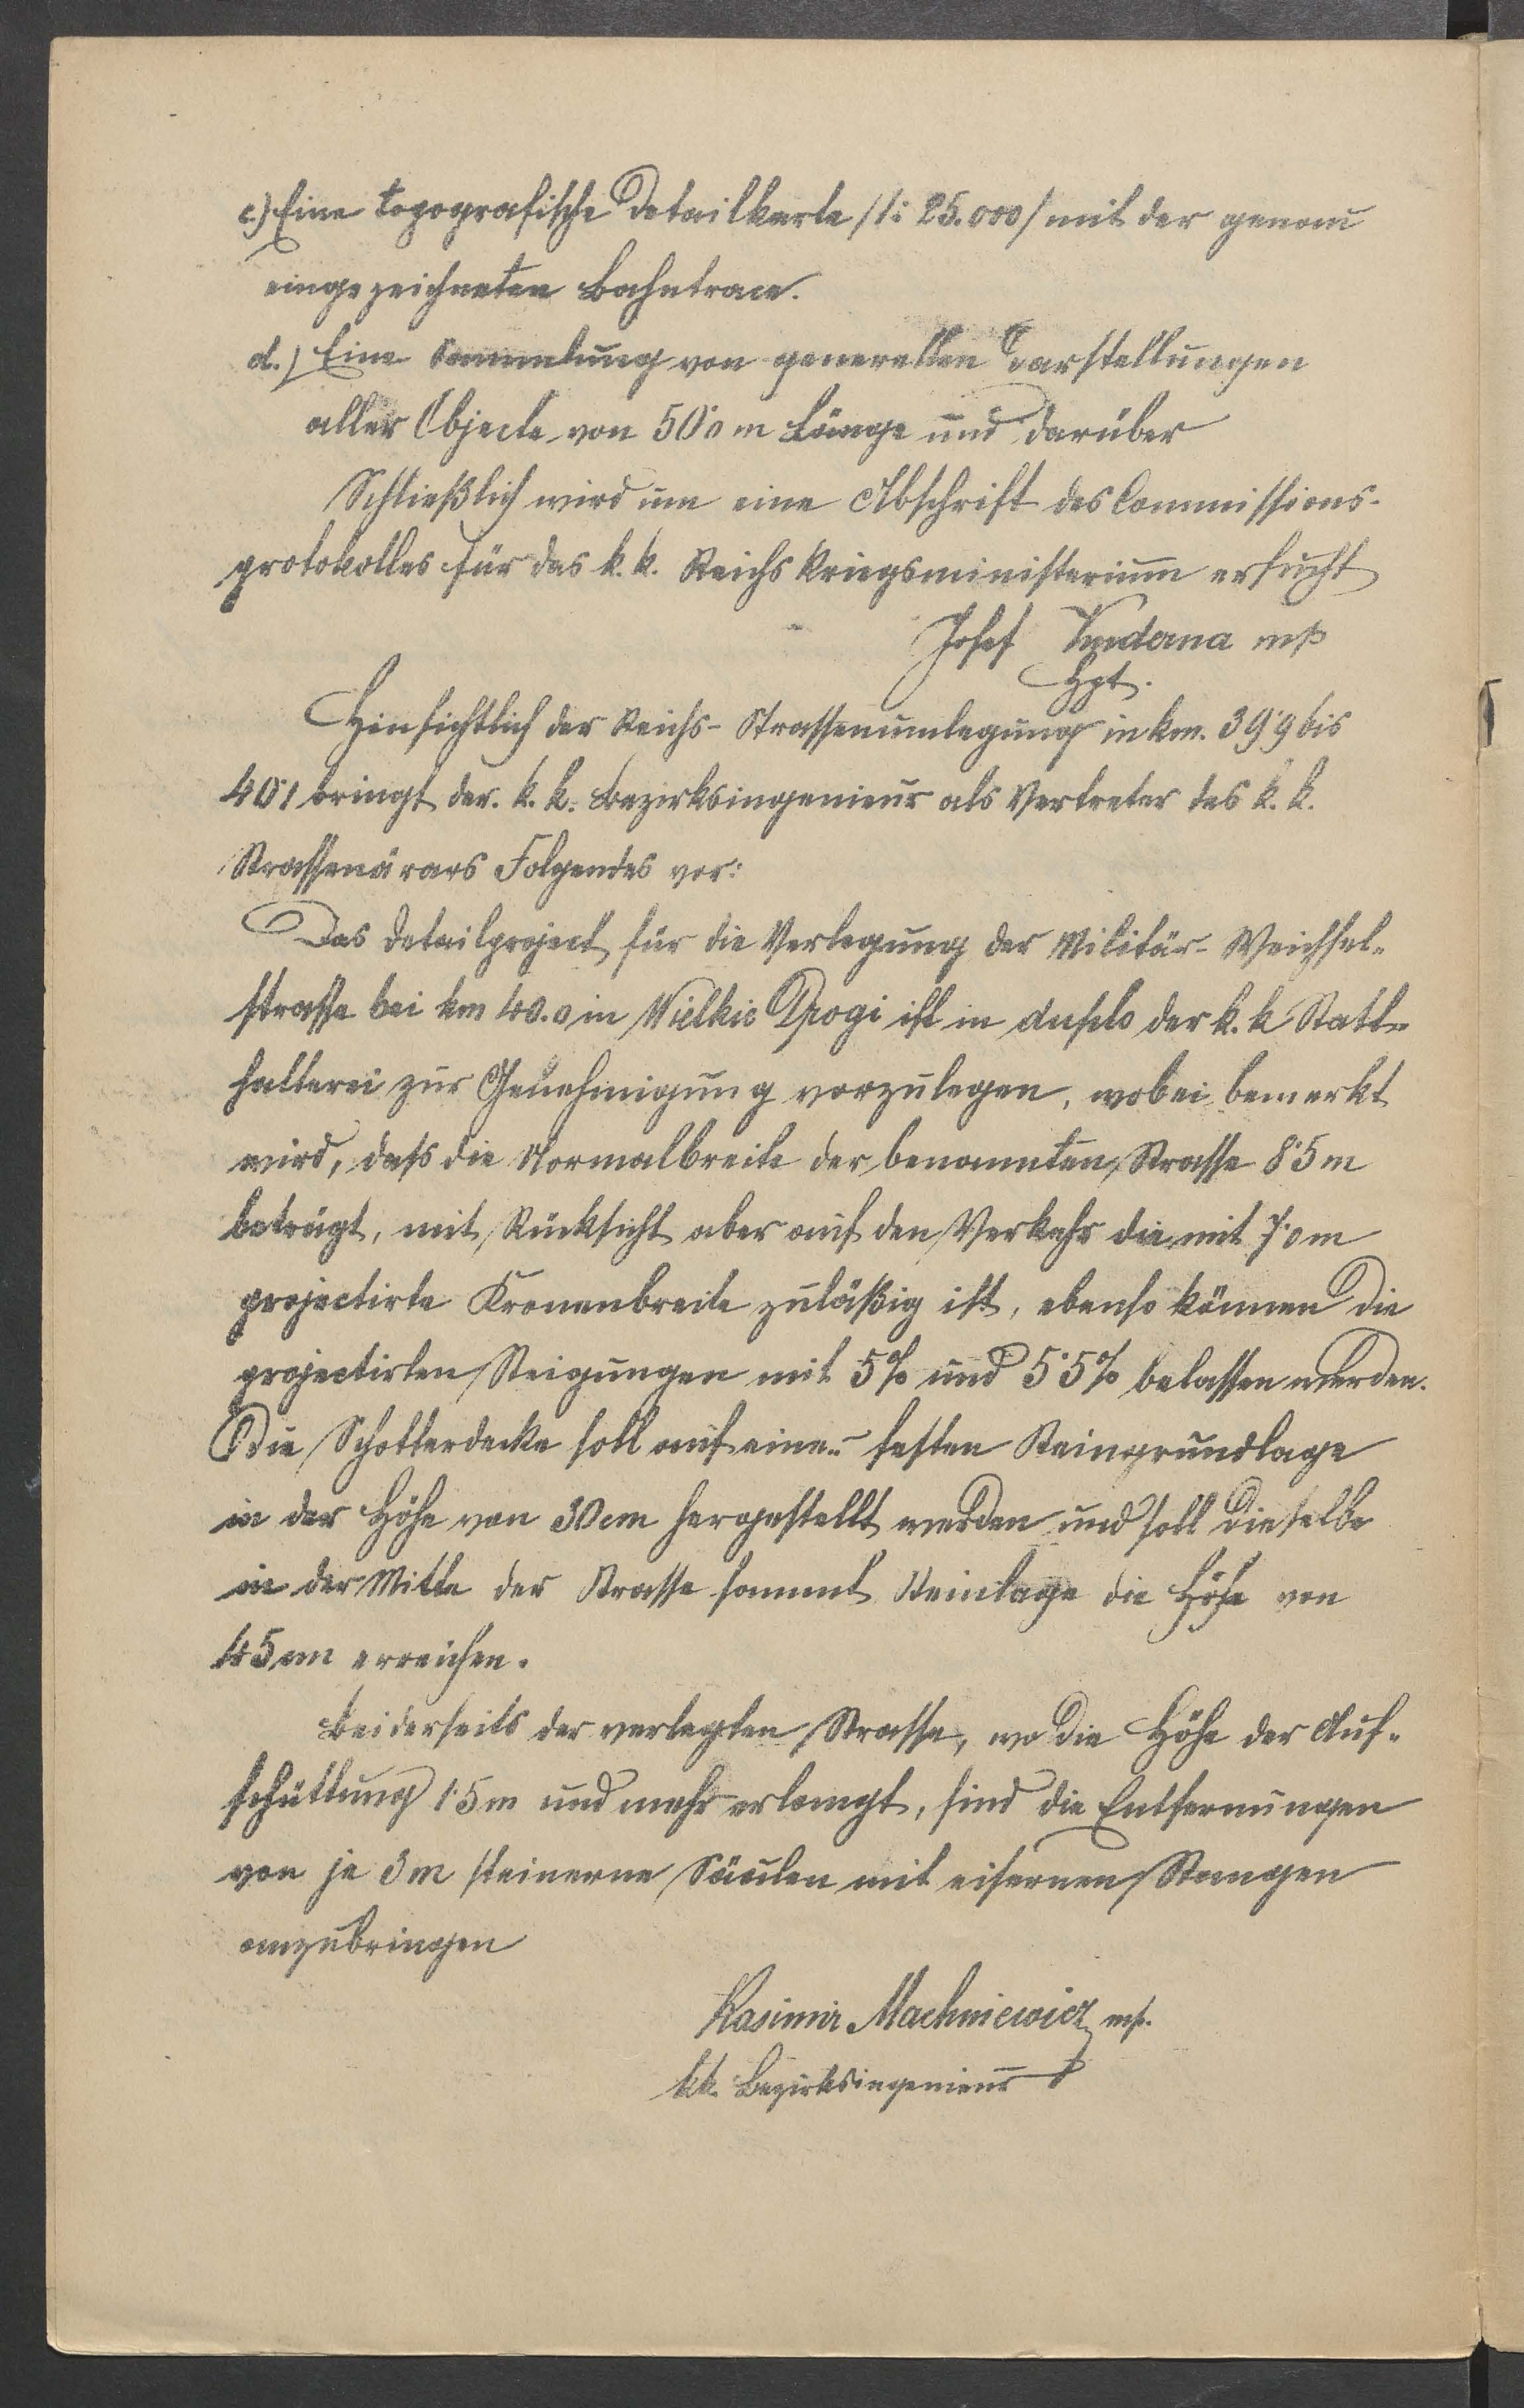 c.) Eine topografische Detailkarte /1: 25.000/ mit der genau
eingezeichneten Bahntrace.
d.) Eine Sammlung von generellen Darstellungen
aller Objecte von 50·0 m Länge und darüber
Schließlich wird um eine Abschrift des Commissions-
protokolles für das k. k. Reichskriegsministerium ersucht
Josef Kuderna mp
Hpt.
Hinsichtlich der Reichs-Strassenumlegung in km. 39·9 bis
40·1 bringt der k. k. Bezirksingenieur als Vertreter des k. k.
Strassenärars Folgendes vor:
Das Detailproject für die Verlegung der Militär-Weichsel-
strasse bei km 40.0 in Wielkie Drogi ist in der k. k. Statt-
halterei zur Genehmigung vorzulegen, wobei bemerkt
wird, daſs die Normalbreite der benannten Strasse 8·5 m
beträgt, mit Rücksicht aber auf den Verkehr die mit 7·0 m
projectirte Kronenbreite zuläßig ist, ebenso können die
projectirten Steigungen mit 5% und 5·5% belassen werden.
Die Schotterdecke soll auf einer festen Steingrundlage
in der Höhe von 30 cm hergestellt werden und soll dieselbe
in der Mitte der Strasse sammt Steinlage die Höhe von
45 cm erreichen.
Beiderseits der verlegten Strasse, wo die Höhe der Auf-
schüttung 1·5 m und mehr erlangt, sind die Entfernungen
von je 3 m steinerne Säulen mit eisernen Stangen
anzubringen
Kasimir Machniewicz mp.
kk. Bezirksingenieur